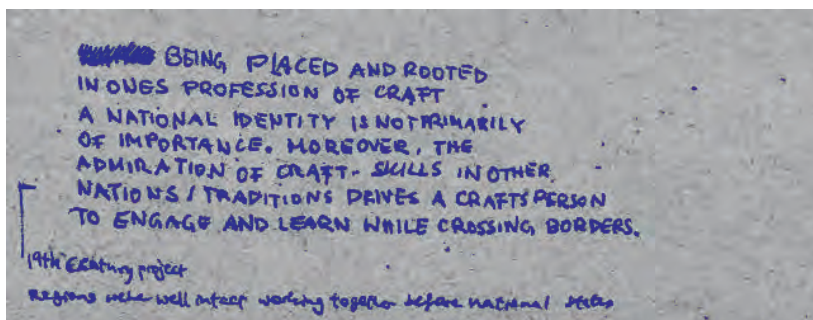 BEING PLACED AND ROOTED
IN ONES PROFESSION OF CRAFT
A NATIONAL IDENTITY IS NOT PRIMARILY
OF IMPORTANCE. MOREOVER, THE
ADMIRATION OF CRAFT-SKILLS IN OTHER
NATIONS / TRADITIONS DRIVES A CRAFTSPERSON
TO ENGAGE AND LEARN WHILE CROSSING BORDERS.
19th Century project
Regions were well intact working together before national states